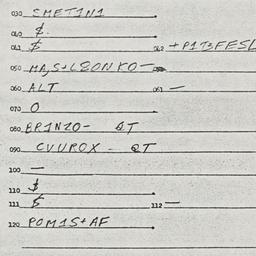 030 SMET1N1
040 $.
041 $ 042 + P1T3FESL
050 MA,S+L80NKO-
060 ALT 061 —
070 O
080 BR1NZO- QT
090 CVUROX - QT
100 —
110 $
111 $ 112 —
120 POM1S+AF